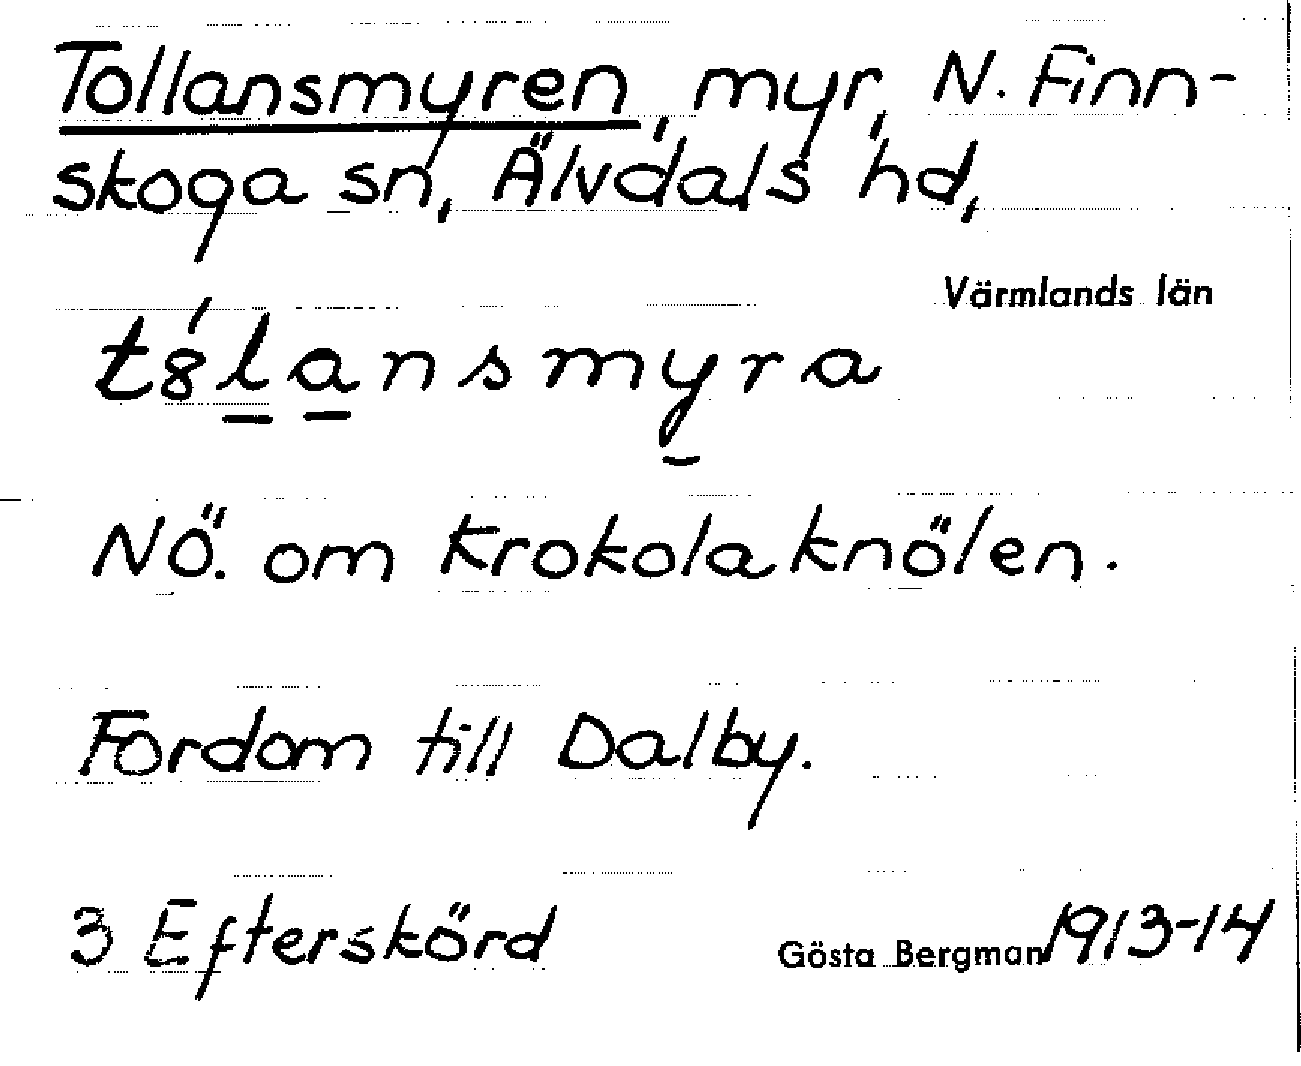 Tollansmyren, myr, N. Finn-
skoga sn, Älvdals hd,
Värmlands län
t8́l̲a̲nsmyra
NÖ. om Krokolaknölen.
Fordom till Dalby.
3 Efterskörd Gösta Bergman 1913-14